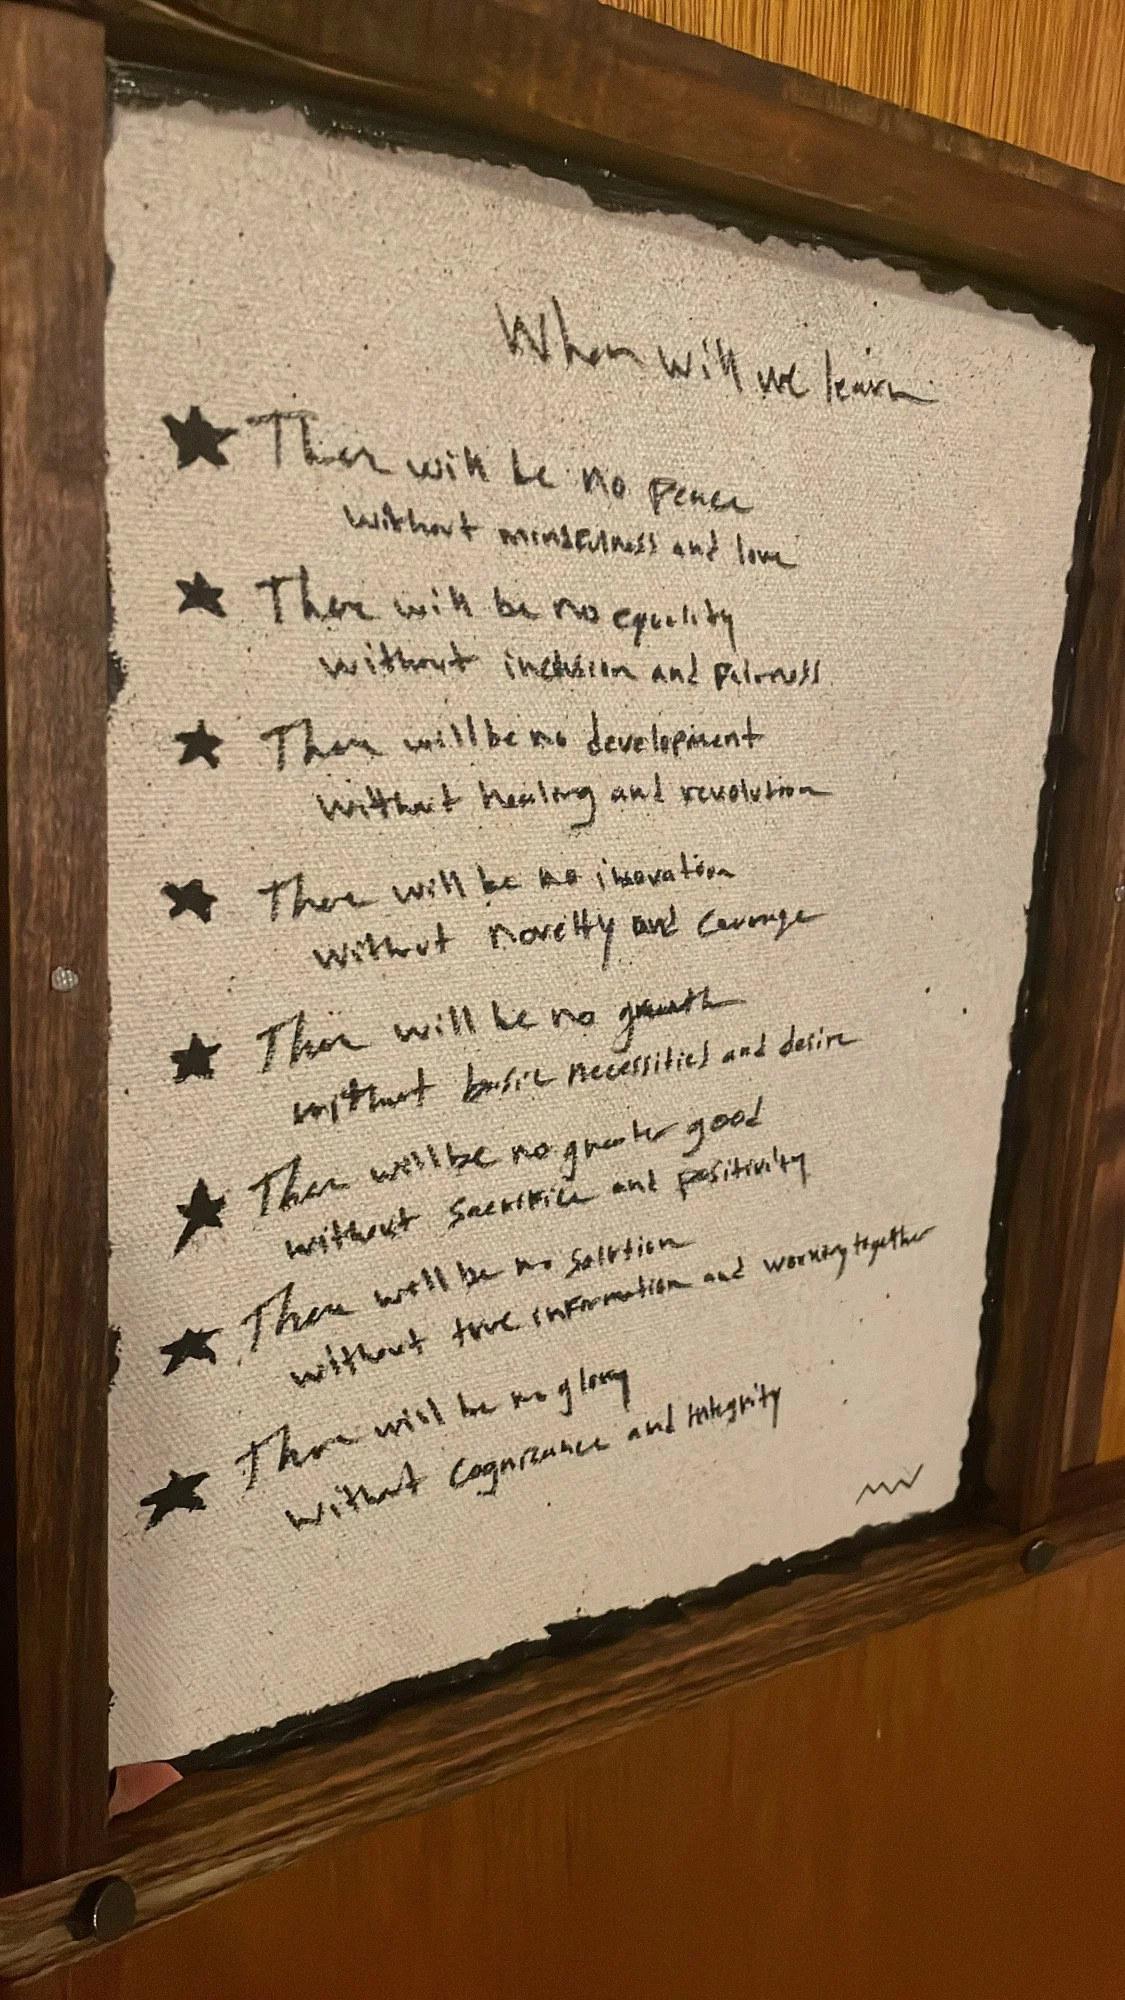 When will we learn
There will be no peace
without mindfulness and love
There will be no equality
without inclusion and fairness
There will be no development
without healing and revolution
There will be no inovation
without novelty and courage
There will be no growth
without basic necessities and desire
There will be no greater good
without sacrifice and positivity
There will be no solution
without true information and working together
There will be no glory
without cognizance and integrity